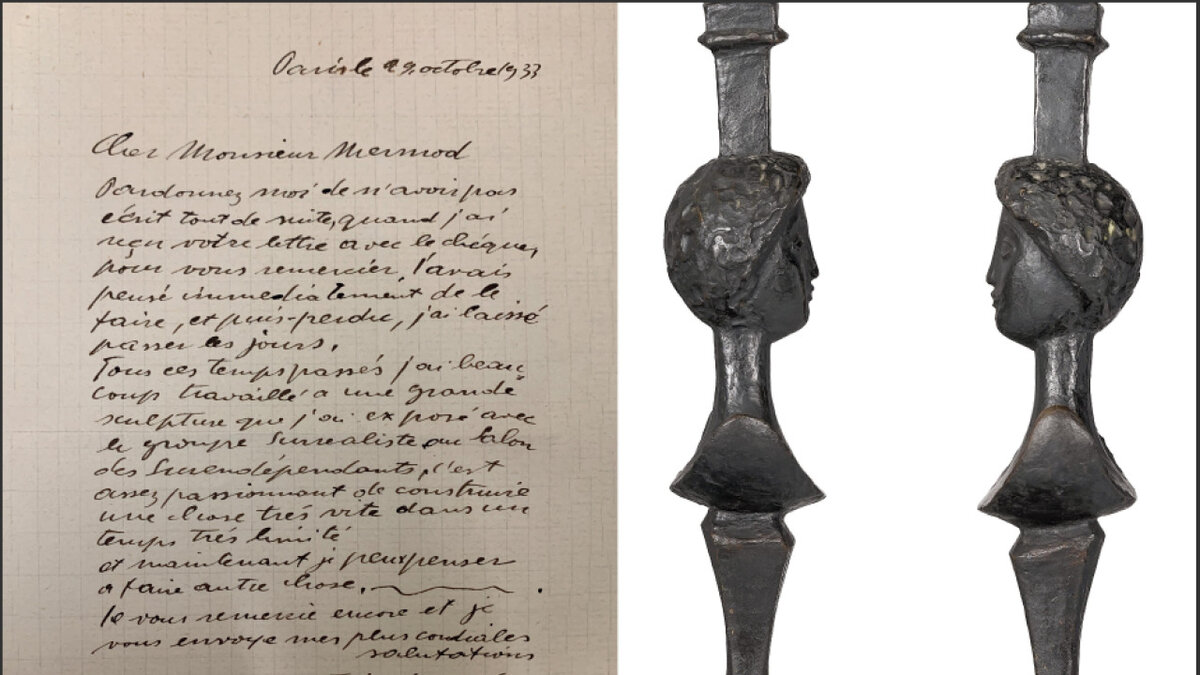 Paris le 29 octobre 1933
Cher Monsieur Mermod
Pardonnez moi de n'avoir pas
écrit tout de suite, quand j'ai
reçu votre lettre avec le chéque,
pour vous remercier, l'avais
pensé immediatement de le
faire, et puis-perdu, j'ai laissé
passer les jours.
Tous ces temps passés j'ai beau
coup travaillé a une grande
sculpture que j'ai exposé avec
le groupe Surrealiste au Salon
des Surendépendants, c'est
assez passionnant de construire
une chose trés vite dans un
temps trés limité
et maintenant je peux penser
a faire autre chose.
Je vous remercie encore et je
vous envoye mes plus cordiales
salutations